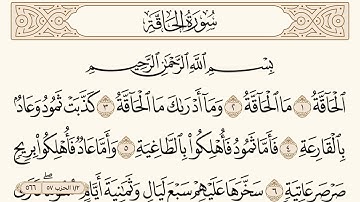 سُورَةُ الحَاقَّةِ
بِسْمِ اللَّهِ الرَّحْمَٰنِ الرَّحِيمِ
الْحَاقَّةُ ١ مَا الْحَاقَّةُ ٢ وَمَا أَدْرَىٰكَ مَا الْحَاقَّةُ ٣ كَذَّبَتْ ثَمُودُ وَعَادٌ
بِالْقَارِعَةِ ٤ فَأَمَّا ثَمُودُ فَأُهْلِكُوا بِالطَّاغِيَةِ ٥ وَأَمَّا عَادٌ فَأُهْلِكُوا بِرِيحٍ
صَرْصَرٍ عَاتِيَةٍ ٦ سَخَّرَهَا عَلَيْهِمْ سَبْعَ لَيَالٍ وَثَمَٰنِيَةَ أَيَّامٍ
١/٢ الحزب ٥٧
٥٦٦